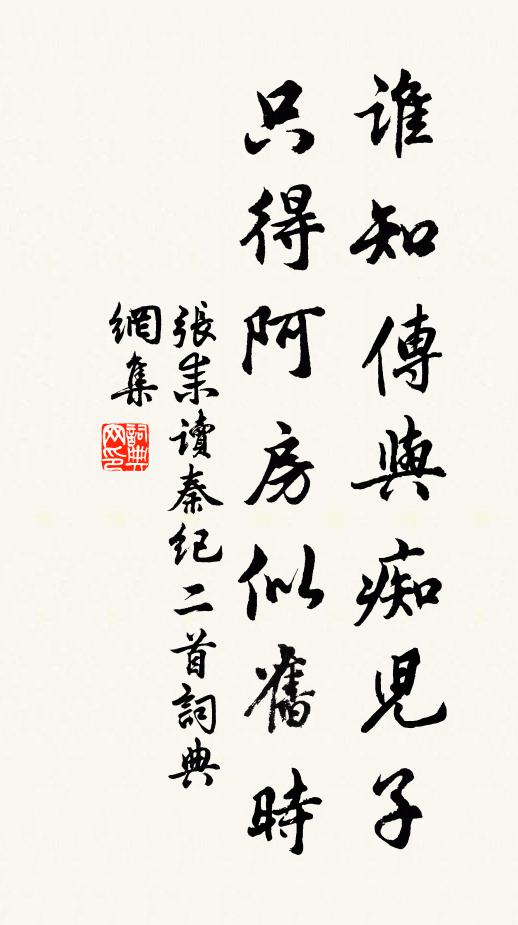 誰知傳與痴児子
只得阿房似舊時
張耒讀秦紀二首詞典
網集
詞典
网印